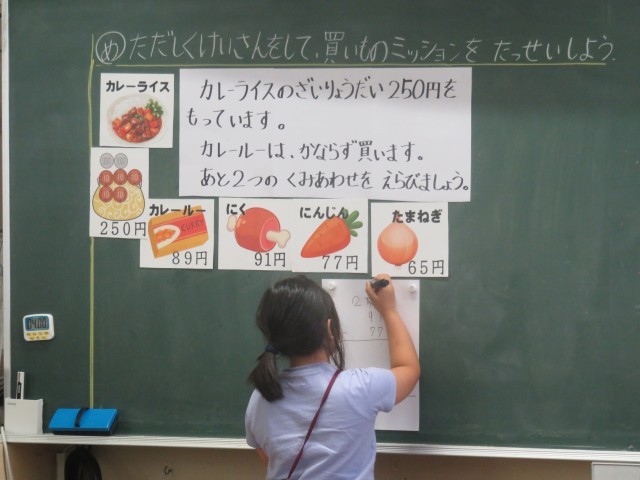 め ただしくけいさんをして、買いものミッションを たっせいしよう.
カレーライス
カレーライスのざいりょうだい250円を
もっています。
カレールーは、かならず買います。
あと2つの くみあわせを えらびましょう。
250円
カレールー
89円
にく
91円
にんじん
77円
たまねぎ
65円
77